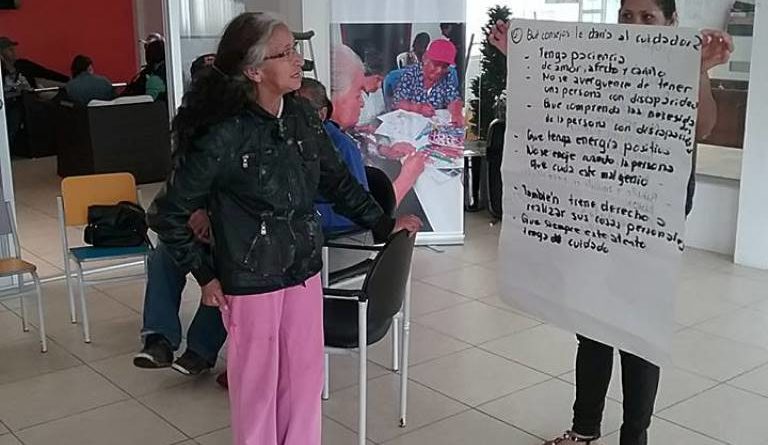 ② Que consejos le daría al cuidador?
- Tenga paciencia
- de amor, afecto y cariño
- No se averguence de tener
una persona con discapacidad
- Que comprenda las necesida
de la persona con discapacid
- Que tenga energía positiva
- No se enoje cuando la persona
que cuida este mal genio
- También tiene derecho a
realizar sus cosas personales
- Que siempre este atento
tenga de cuidado